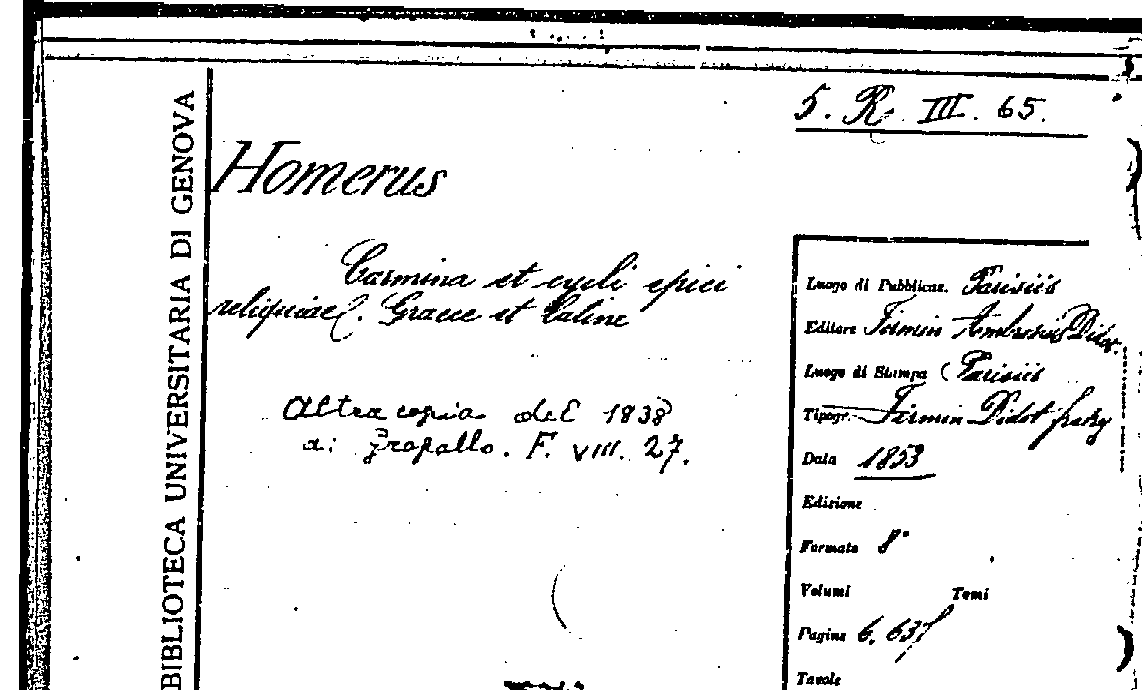 BIBLIOTECA UNIVERSITARIA DI GENOVA
5. R. III. 65.
Homerus
Carmina et cycli epici
reliquiae. Graece et latine
Altra copia del 1838
a: Gropallo. F. VIII. 27.
Luogo di Pubblicaz. Parisiis
Editore Firmin Ambrosius Didot
Luogo di Stampa Parisiis
Tipogr. Firmin Didot
Data 1853
Edizione
Formato 8°
Volumi Tomi
Pagine 6, 637
Tavole